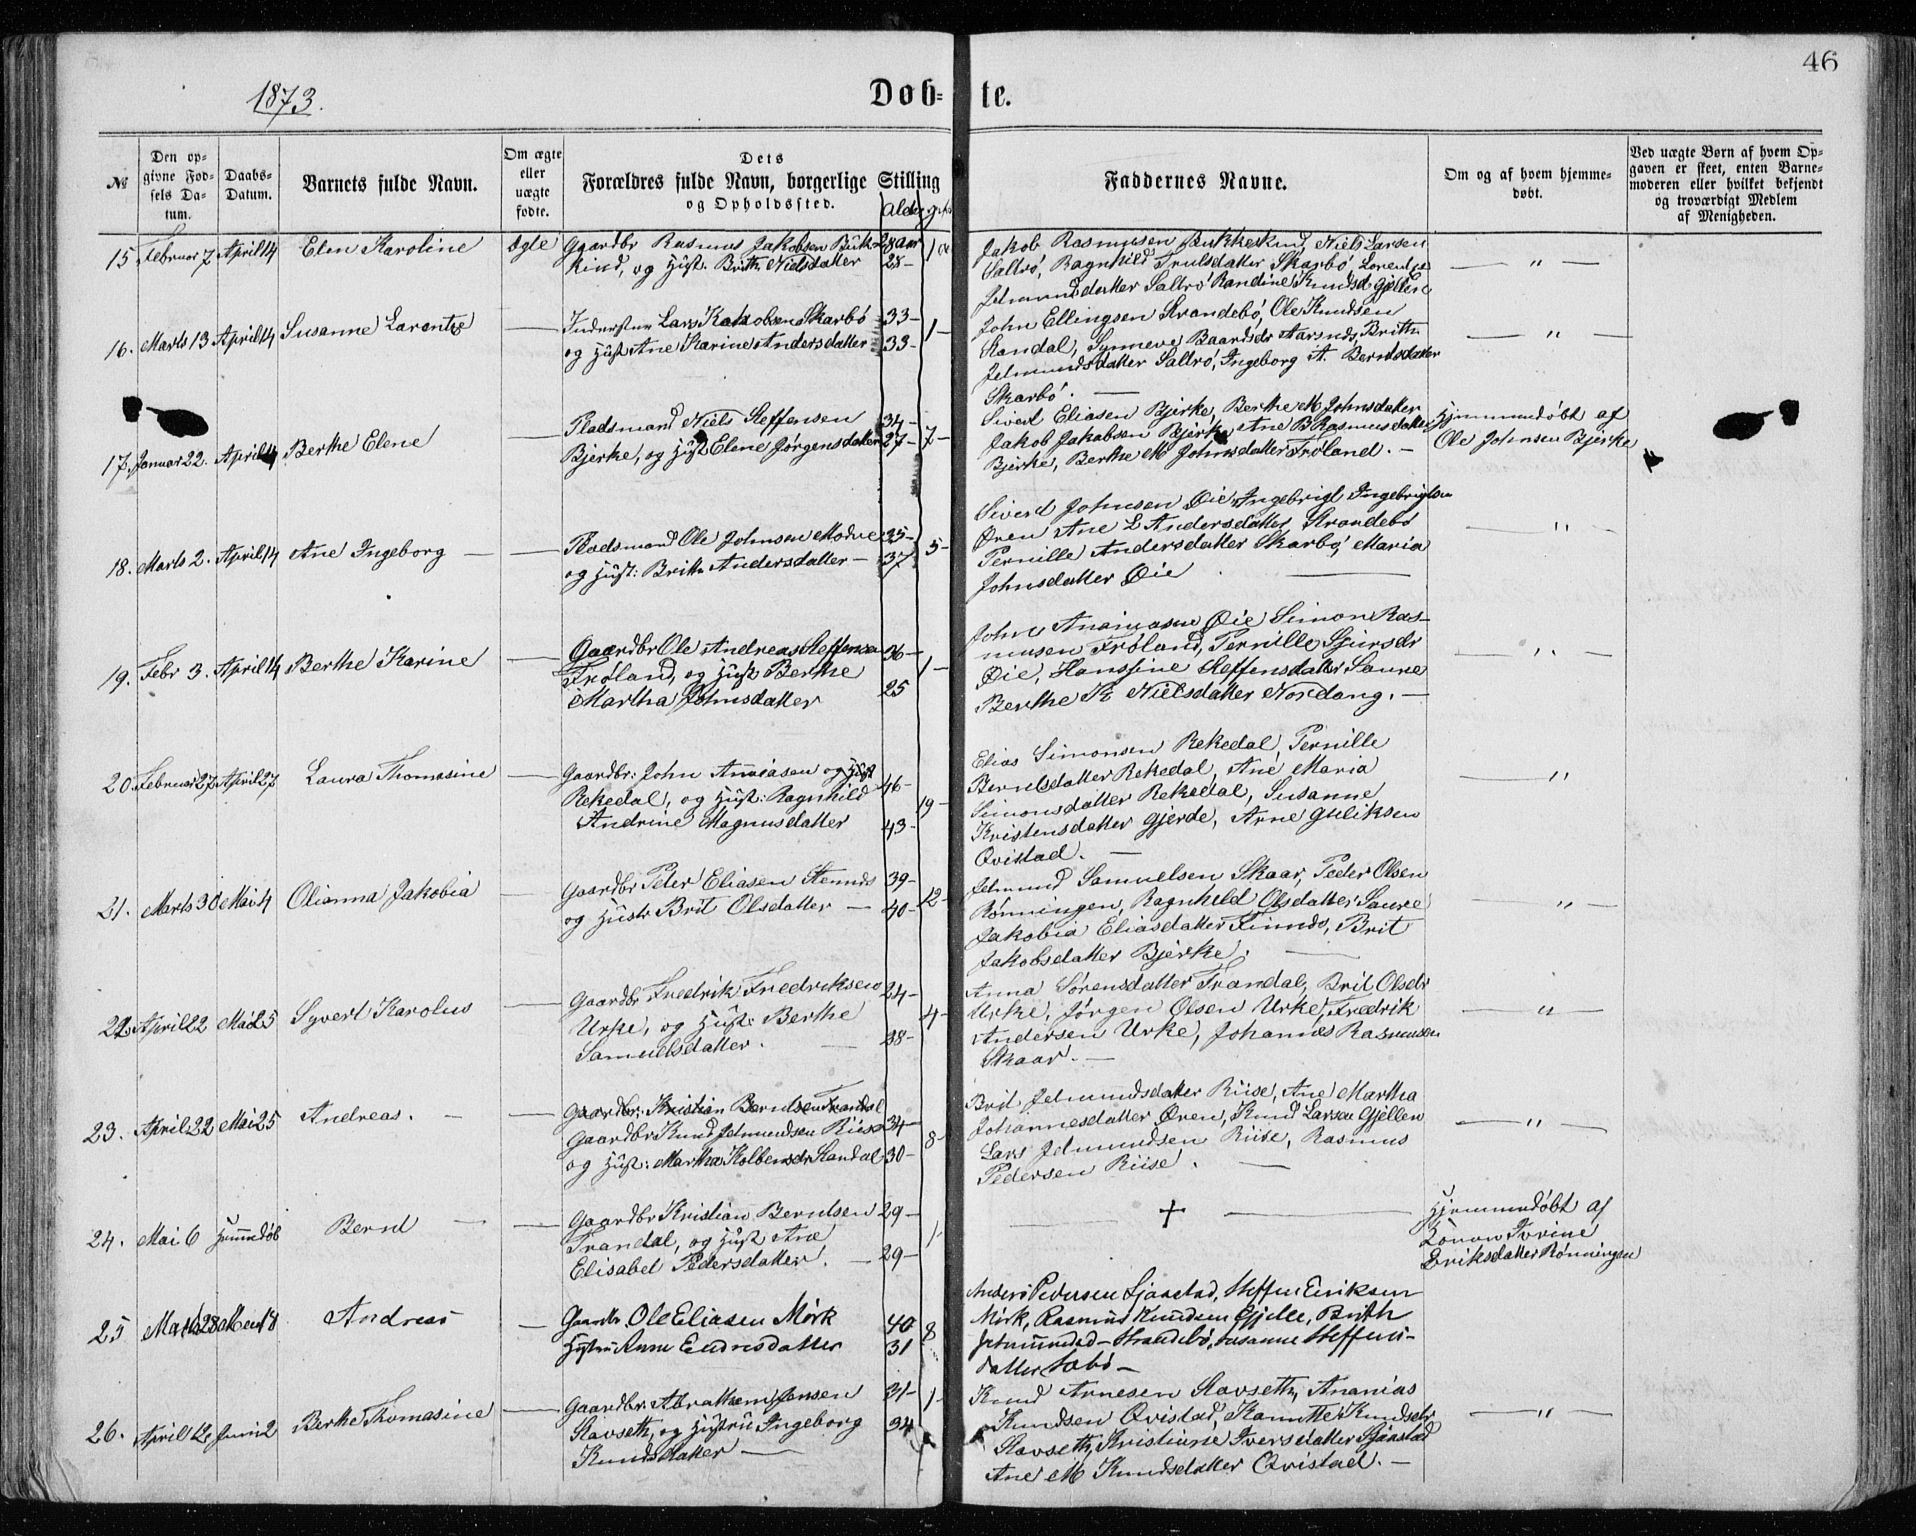 46
1873.
Døb= te.
№
Den op-
givne Fød-
sels Da-
tum.
Daabs-
Datum.
Barnets fulde Navn.
Om ægte
eller
uægte
fødte.
Dets
Forældres fulde Navn, borgerlige Stilling
og Opholdssted.
Alder
Faddernes Navne.
Om og af hvem hjemme-
døbt.
Ved uægte Børn af hvem Op-
gaven er skeet, enten Barne-
moderen eller hvilket bekjendt
og troværdigt Medlem
af Menigheden.
15 Februar 7 April 14 Elen Karoline Ægte
Gaardbr Rasmus Jakobsen Buk- 28 aar 1
kind, og Hust. Brith Nielsdatter 28-
Jakob Rasmusen Bukkeskind, Niels Larsen
Saltrø, Ragnhild Trulsdatter Skarbø Lorentze
Jetmundsdatter Saltrø Randine Knudsd Gjellen
— " —
16. Marts 13 April 14 Susanne Larentze —
Inderster Lars Jakobsen Skarbø 33- 1-
og Hust Ane Karine Andersdatter 33-
John Ellingsen Strandebø, Ole Knudsen
Standal, Synneve Baardsdr Aarsnes, Brith
Jetmundsdatter Saltrø, Ingeborg A. Berntsdatter
Skarbø. —
— " —
17. Januar 22. April 14 Berthe Elene —
Pladsmand Niels Steffensen 34-
Bjerke, og Hust Elene Jørgensdatter 27- 7-
Sivert Eliasen Bjerke, Berthe M Johnsdatter
Jakob Jakobsen Bjerke, Ane B Rasmusdatter
Bjerke, Berthe M Johnsdatter Frøland. —
Hjemmedøbt af
Ole Johnsen Bjerke
18. Marts 2. April 14 Ane Ingeborg — —
Pladsmand Ole Johnsen Modve 35- 5-
og Hust: Brith Andersdatter — 37-
Sivert Johnsen Øie, Ingebrigt Ingebrigtsen
Øren Ane E Andersdatter Strandebø
Pernille Andersdatter Skarbø, Maria
Johnsdatter Øie —
— " —
19. Febr 3. April 14 Berthe Karine —
Gaardbr Ole Andreas Steffensen 36-
Frøland, og Hust Berthe 1-
Martha Johnsdatter 25
John Ananiasen Øie Simon Ras-
musen Frøland, Pernille Sjursdr
Øie, Hansine Steffensdatter Saure
Berthe K Nielsdatter Nordang. —
— " —
20. Februar 27 April 27 Laura Thomasine —
Gaardbr: John Ananiasen og Hust
Rekedal, og Hust: Ragnhild 46- 19-
Andrine Magnusdatter 43-
Elias Simonsen Rekedal, Pernille
Berntsdatter Rekedal, Ane Maria
Simonsdatter Rekedal, Susanne
Kristensdatter Gjerde, Arne Guliksen
Qvistad. —
— " —
21. Marts 30 Mai 4 Olianna Jakobia —
Gaardbr Peter Eliasen Stennes 39- 12-
og Hustr Brit Olsdatter — 40-
Jetmund Samuelsen Skaar, Peder Olsen
Rønningen, Ragnhild Olsdatter Saure
Jakobia Eliasdatter Finnes, Brit
Jakobsdatter Bjerke. —
— " —
22. April 22 Mai 25 Syvert Karolus —
Gaardbr Fredrik Fredriksen 24-
Urke, og Hust: Berthe 4-
Samuelsdatter. — 38-
Anna Sørensdatter Trandal, Brit Olsdr
Urke, Jørgen Olsen Urke, Fredrik
Andersen Urke, Johannes Rasmusen
Skaar. —
— " —
23. April 22 Mai 25 Andreas. — —
Gaardbr: Kristian Berntsen Trandal
Gaardbr Knud Jetmundsen Riise 34- 8-
og Hust: Martha Kolbensdr Standal 30-
Brit Jetmundsdatter Riise, Ane Martha
Johannesdatter Øren, Knud Larsen Gjellen
Lars Jetmundsen Riise, Rasmus
Pedersen Riise. —
— " —
24. Mai 6 Hjemmedøb Bernt — —
Gaardbr Kristian Berntsen 29-
Trandal, og Hust Ane 1-
Elisabet Pedersdatter. — 29-
— + —
Hjemmedøbt af
Konen Iverine
Eriksdatter Rønningen
25 Marts 28 Mai 18 Andreas —
Gaardbr. Ole Eliasen Mørk 40 8
Hustru Anne Endresdatter 31
Anders Pedersen Sjaastad, Steffen Eriksen
Mørk, Rasmus Knudsen Gjelle, Brith
Jetmundsd — Strandebø, Susanne Steffens-
datter Sæbø —
26. April 12 Juni 2 Berthe Thomasine —
Gaardbr: Abraham Jensen 31- 1-
Stavseth, og Hustru Ingeborg 34
Knudsdatter —
Knud Arnesen Stavseth, Ananias
Knudsen Qvistad, Kanutte Knudsdr
Stavseth, Kristiane Iversdatter Sjåstad
Ane M Knudsdatter Qvistad. —
— " —